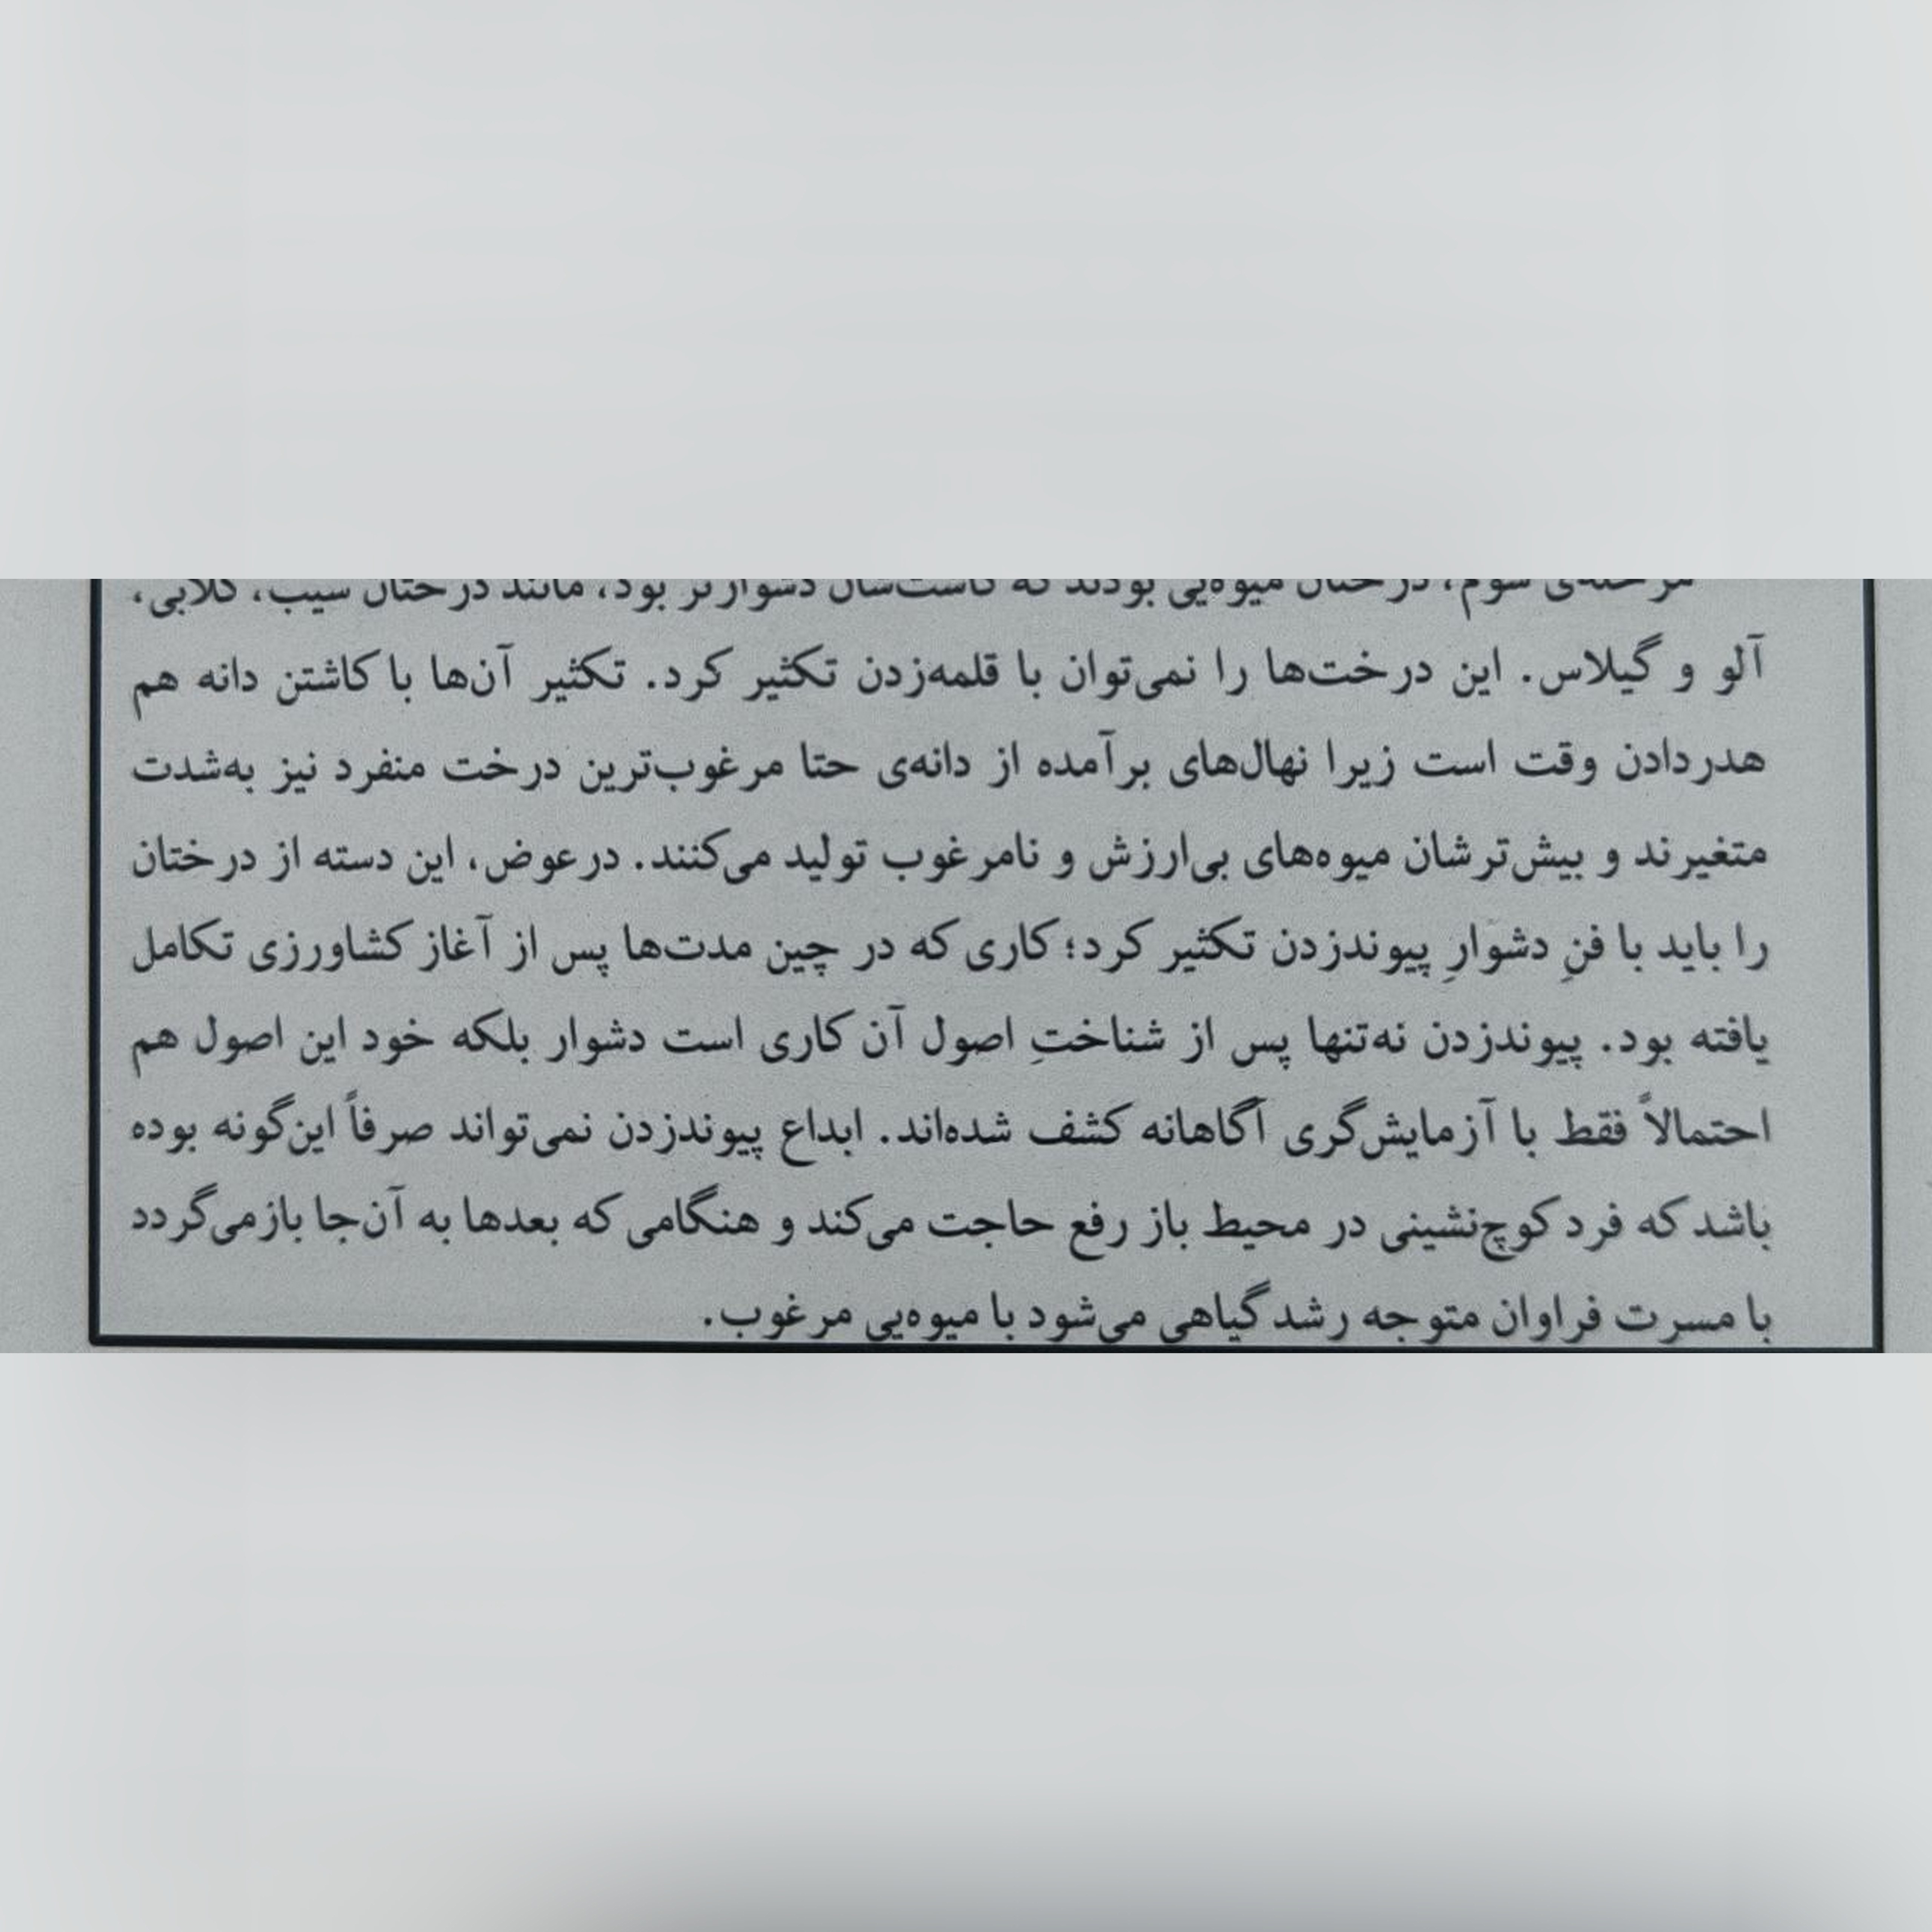 مرحله‌ی سوم، درختان میوه‌یی بودند که کاشت‌شان دشوارتر بود، مانند درختان سیب، گلابی،
آلو و گیلاس. این درخت‌ها را نمی‌توان با قلمه‌زدن تکثیر کرد. تکثیر آن‌ها با کاشتن دانه هم
هدردادن وقت است زیرا نهال‌های برآمده از دانه‌ی حتا مرغوب‌ترین درخت منفرد نیز به‌شدت
متغیرند و بیش‌ترشان میوه‌های بی‌ارزش و نامرغوب تولید می‌کنند. درعوض، این دسته از درختان
را باید با فنِ دشوارِ پیوندزدن تکثیر کرد؛ کاری که در چین مدت‌ها پس از آغاز کشاورزی تکامل
یافته بود. پیوندزدن نه‌تنها پس از شناختِ اصول آن کاری است دشوار بلکه خود این اصول هم
احتمالاً فقط با آزمایش‌گری آگاهانه کشف شده‌اند. ابداع پیوندزدن نمی‌تواند صرفاً این‌گونه بوده
باشد که فرد کوچ‌نشینی در محیط باز رفع حاجت می‌کند و هنگامی که بعدها به آن‌جا بازمی‌گردد
با مسرت فراوان متوجه رشد گیاهی می‌شود با میوه‌یی مرغوب.